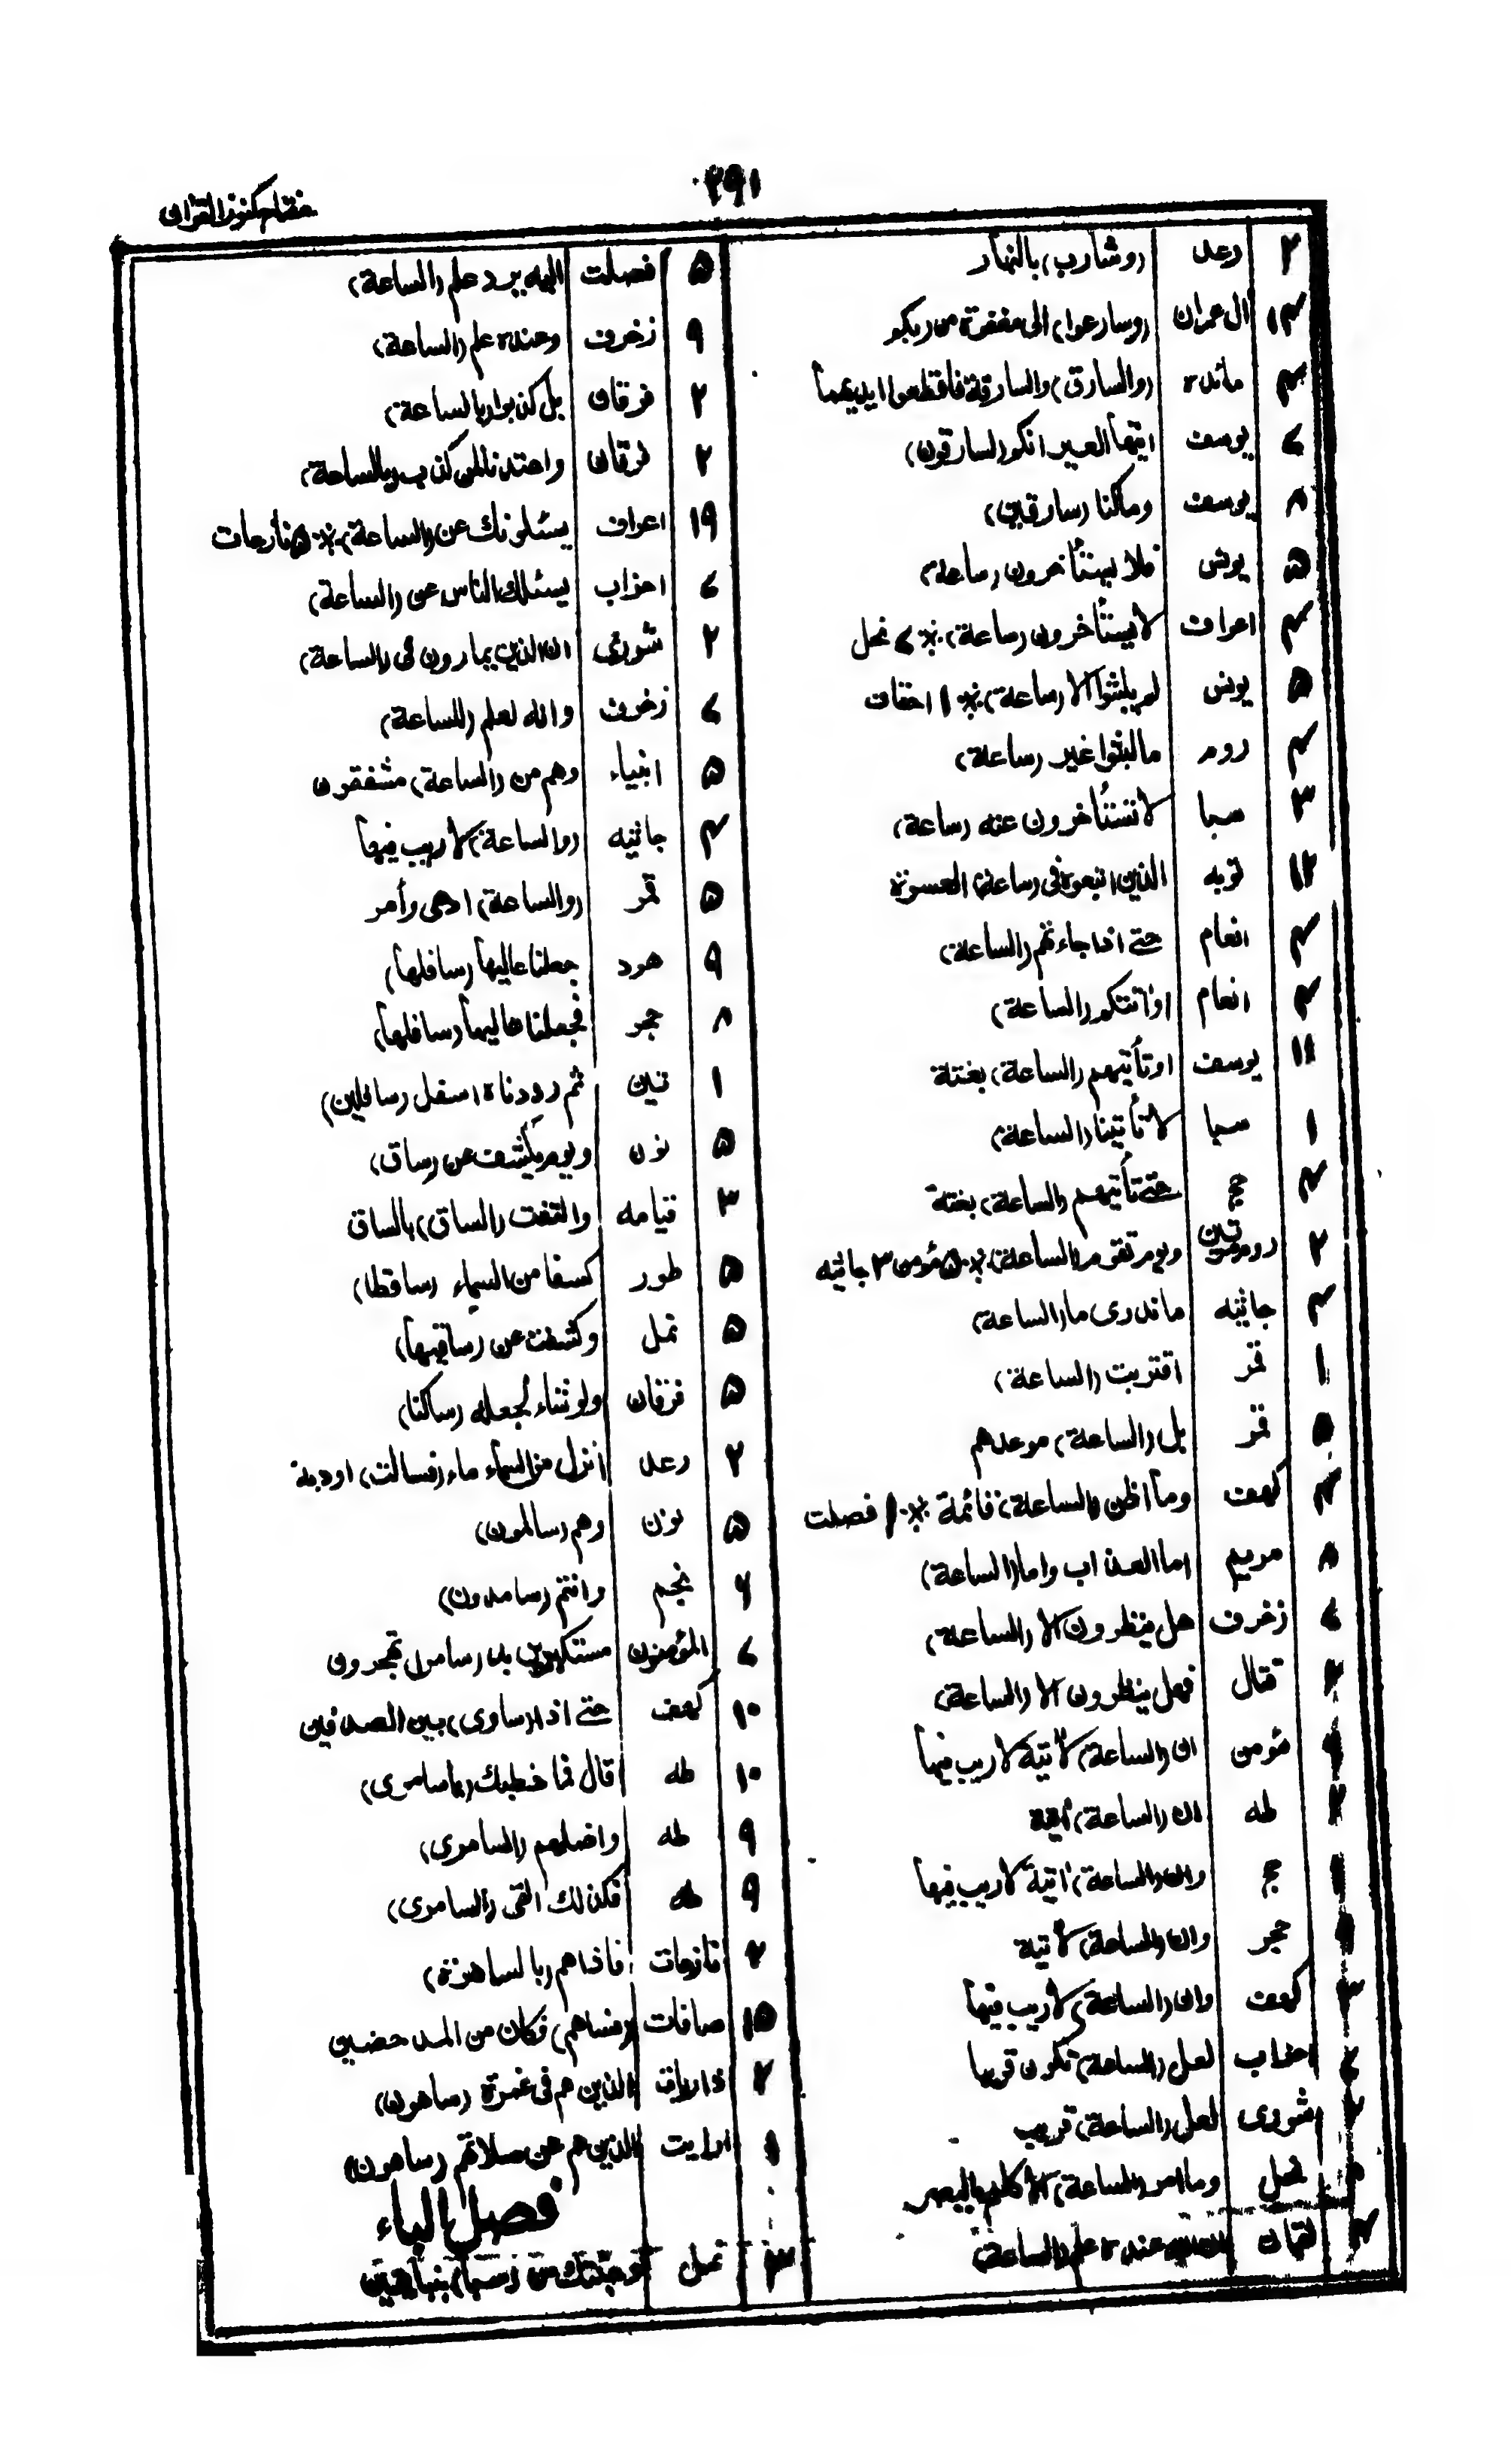 ٢٩١
مفتاح كنوز القرآن
٢ رعد (وسارب) بالنهار
١٤ ال عمران (وسارعوا) الى مغفرة من ربكم
مائده (والسارق) والسارقة فاقطعوا ايديهما
يوسف ايتها العير انكم (لسارقون)
٨ يوسف وماكنا (سارقين)
٥ يونس فلا يستأخرون (ساعة)
٤ اعراف لا يستأخرون (ساعة) ٪ ٧ نحل
٥ يونس لم يلبثوا الا (ساعة) ٪ احقاف
روم ما لبثوا غير (ساعة)
٣ سبا لا تستأخرون عنه (ساعة)
١٢ توبه الذين اتبعوه فى (ساعة) العسرة
٤ انعام حتى اذا جاءتهم (الساعة)
٤ انعام او اتتكم (الساعة)
١١ يوسف او تأتيهم (الساعة) بغتة
١ سبا لا تأتينا (الساعة)
حج حتى تأتيهم (الساعة) بغتة
٢ روم ويوم تقوم (الساعة) ٪ ٥ مؤمن ٣ جاثيه
٤ جاثيه ما ندرى ما (الساعة)
١ قمر اقتربت (الساعة)
٥ قمر بل (الساعة) موعدهم
كهف وما اظن (الساعة) قائمة ٪ فصلت
٨ مريم اما العذاب واما (الساعة)
زخرف هل ينظرون الا (الساعة)
٢ قتال فهل ينظرون الا (الساعة)
مؤمن ان (الساعة) لآتية لا ريب فيها
٢ طه ان (الساعة) آتية
حج وان (الساعة) آتية لا ريب فيها
حجر وان (الساعة) لآتية
٣ كهف وان (الساعة) لا ريب فيها
احزاب لعل (الساعة) تكون قريبا
٢ شورى لعل (الساعة) قريب
نحل وما امر (الساعة) الا كلمح البصر
٤ لقمان ان الله عنده علم (الساعة)
٥ فصلت اليه يرد علم (الساعة)
٩ زخرف وعنده علم (الساعة)
٢ فرقان بل كذبوا (بالساعة)
٢ فرقان واعتدنا لمن كذب (بالساعة)
١٩ اعراف يسئلونك عن (الساعة) ٪ ٥ نازعات
احزاب يسئلك الناس عن (الساعة)
٢ شورى ان الذين يمارون فى (الساعة)
زخرف وانه لعلم (للساعة)
٥ انبياء وهم من (الساعة) مشفقون
٤ جاثيه (والساعة) لا ريب فيها
٥ قمر (والساعة) ادهى وأمر
٩ هود جعلنا عاليها (سافلها)
٨ حجر فجعلنا عاليها (سافلها)
١ تين ثم رددناه اسفل (سافلين)
٥ نون ويوم يكشف عن (ساق)
٣ قيامه والتفت (الساق) بالساق
٥ طور كسفا من السماء (ساقطا)
٥ نمل وكشفت عن (ساقيها)
٥ فرقان ولو شاء لجعله (ساكنا)
٢ رعد انزل من السماء ماء (فسالت) اودية
٥ نون وهم (سالمون)
نجم وانتم (سامدون)
المؤمنون مستكبرين به (سامرا) تهجرون
١٠ كهف حتى اذا (ساوى) بين الصدفين
١٠ طه قال فما خطبك (ياسامرى)
٩ طه واضلهم (السامرى)
٩ طه فكذلك القى (السامرى)
٢ نازعات فاذا هم (بالساهرة)
١٥ صافات (فساهم) فكان من المدحضين
٢ ذاريات الذين هم فى غمرة (ساهون)
١ ارايت الذين هم عن صلاتهم (ساهون)
فصل الباء
نمل وجئتك من (سبا) بنبأ يقين